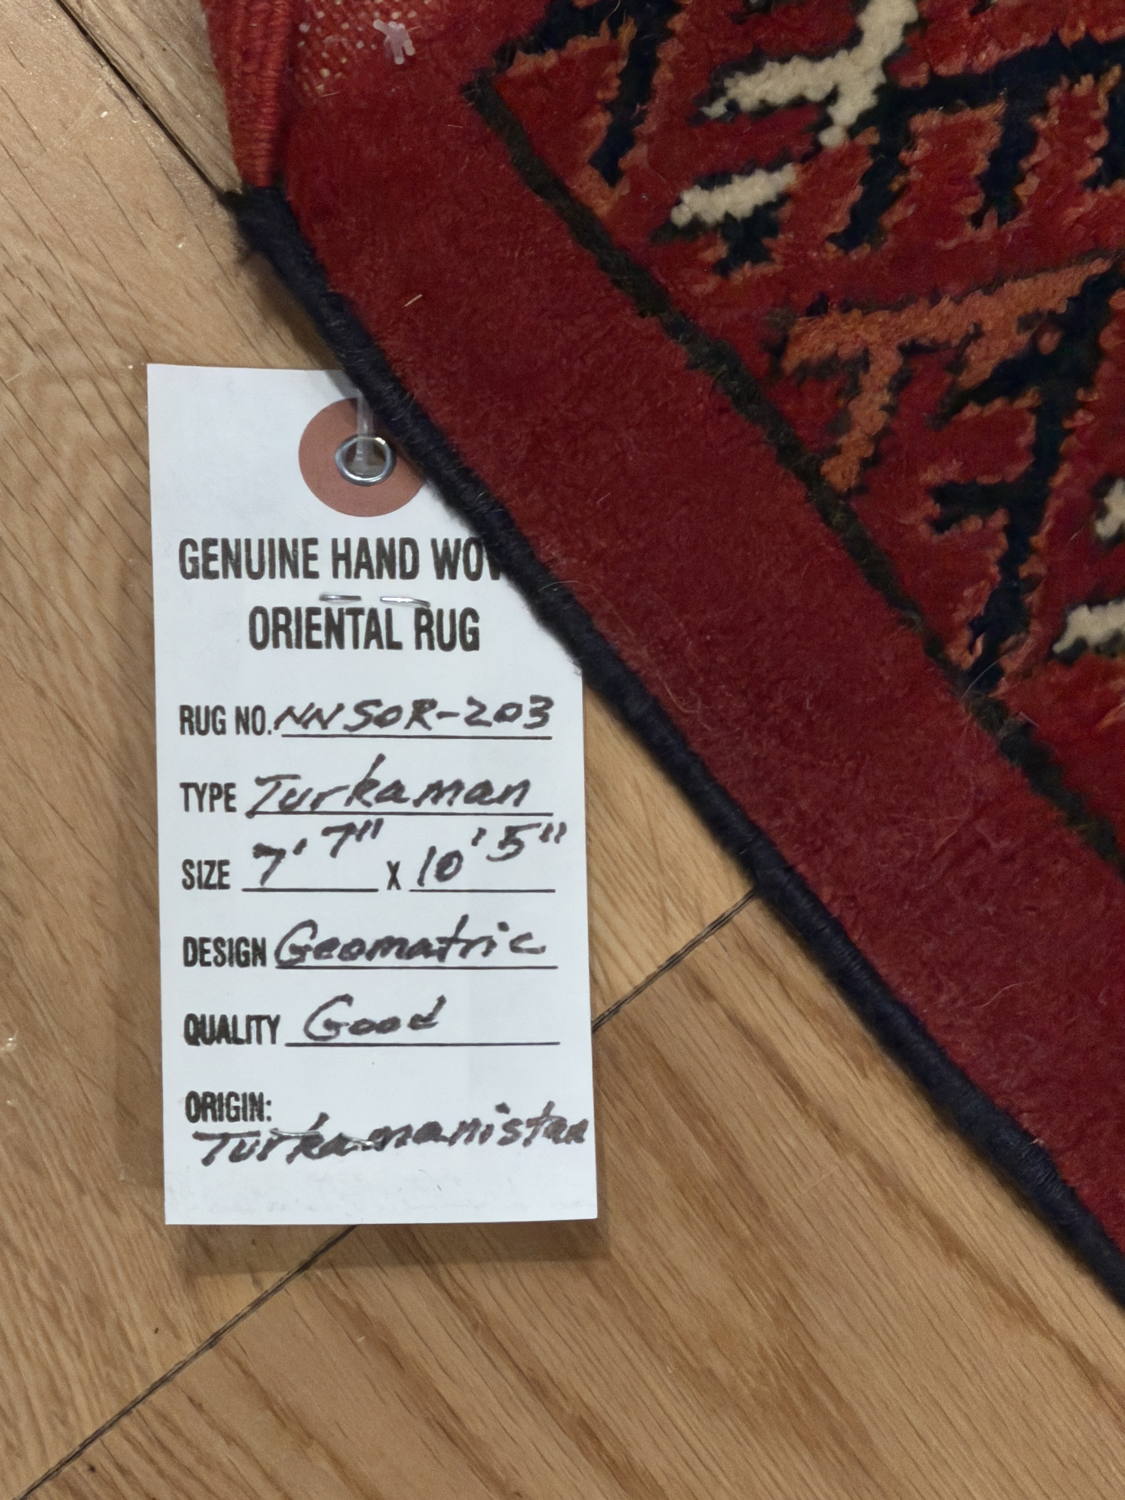 GENUINE HAND WOV
ORIENTAL RUG
RUG NO. NNSOR-203
TYPE Turkaman
SIZE 7' 7" X 10' 5"
DESIGN Geomatric
QUALITY Good
ORIGIN:
Turkamanistan